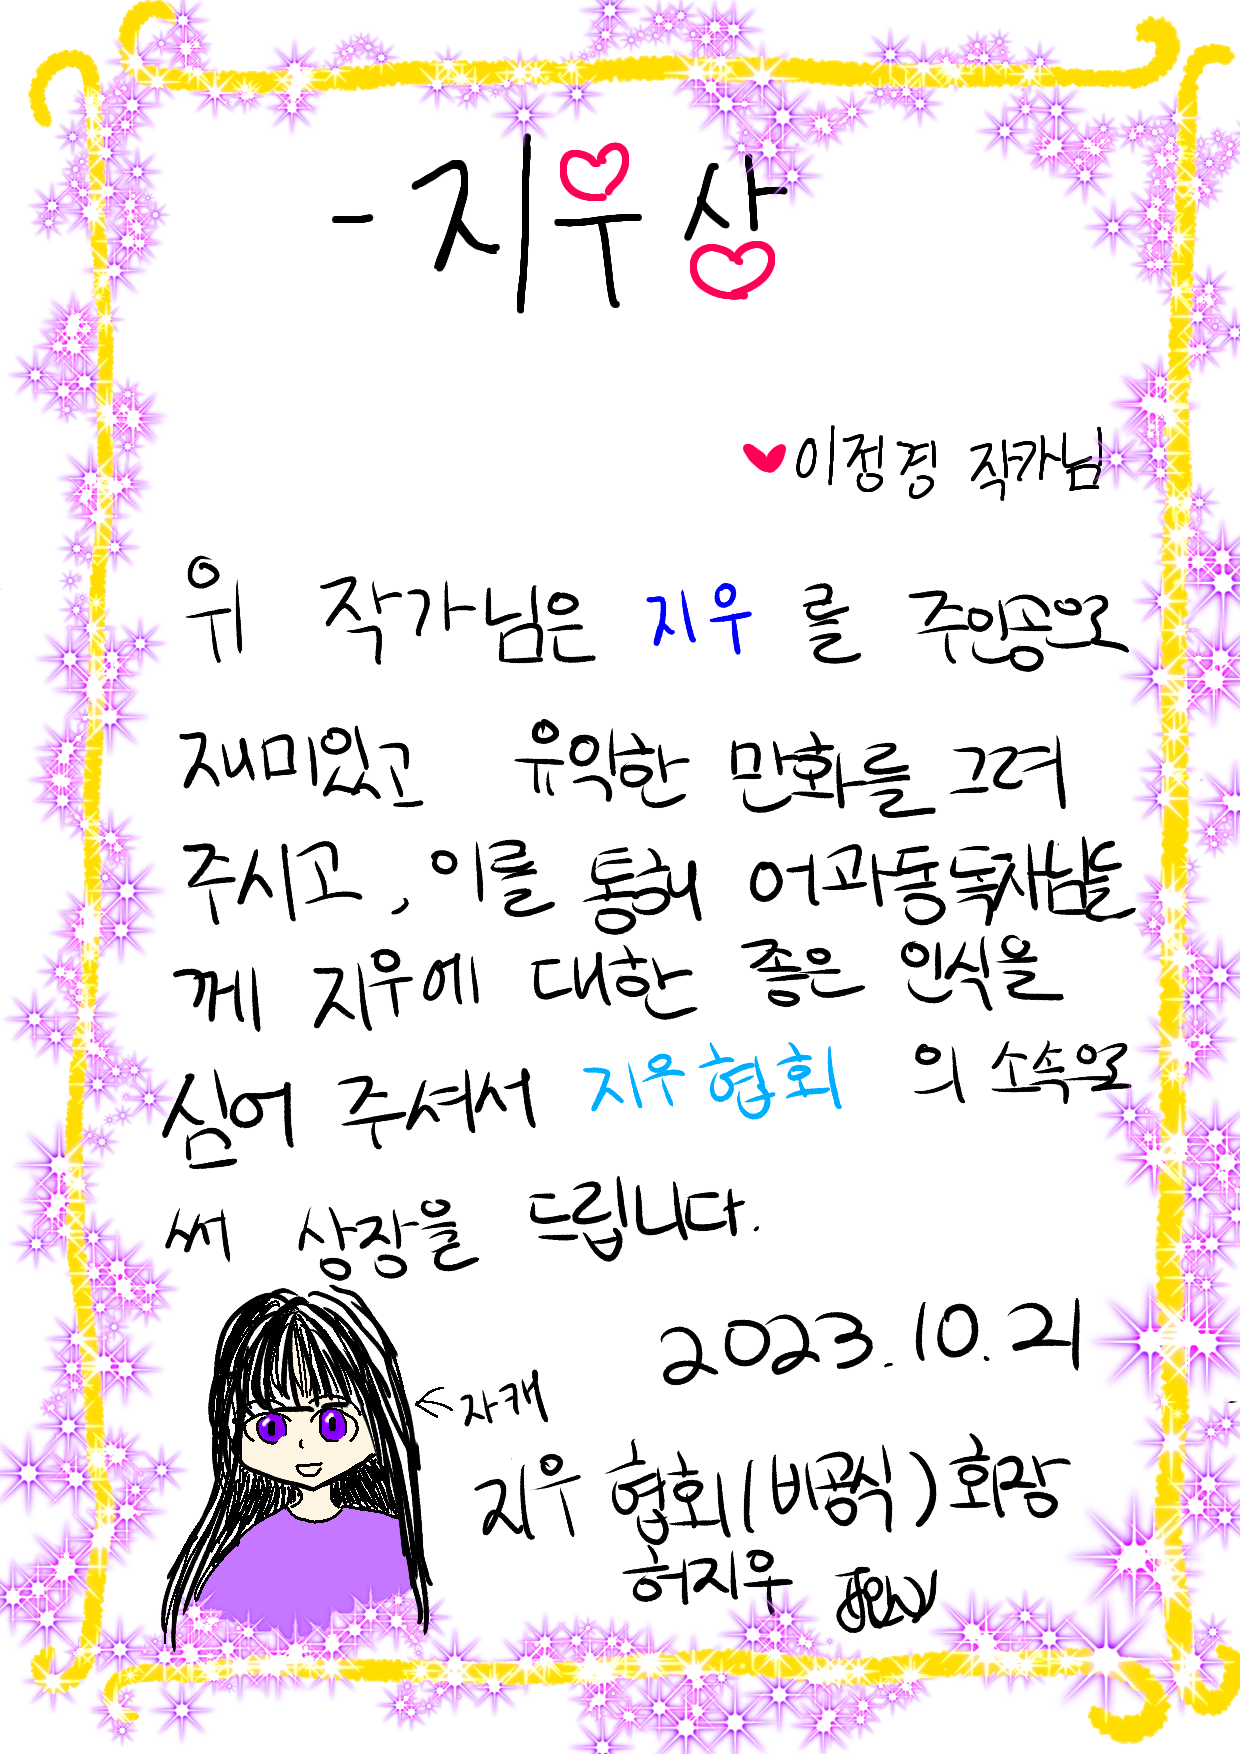 - 지우상
이정경 작가님
위 작가님은 지우를 주인공으로
재미있고 유익한 만화를 그려
주시고, 이를 통해 어과동독자님들
께 지우에 대한 좋은 인식을
심어 주셔서 지우협회 의 소속으로
써 상장을 드립니다.
2023.10.21
←자캐
지우 협회(비공식) 회장
허지우